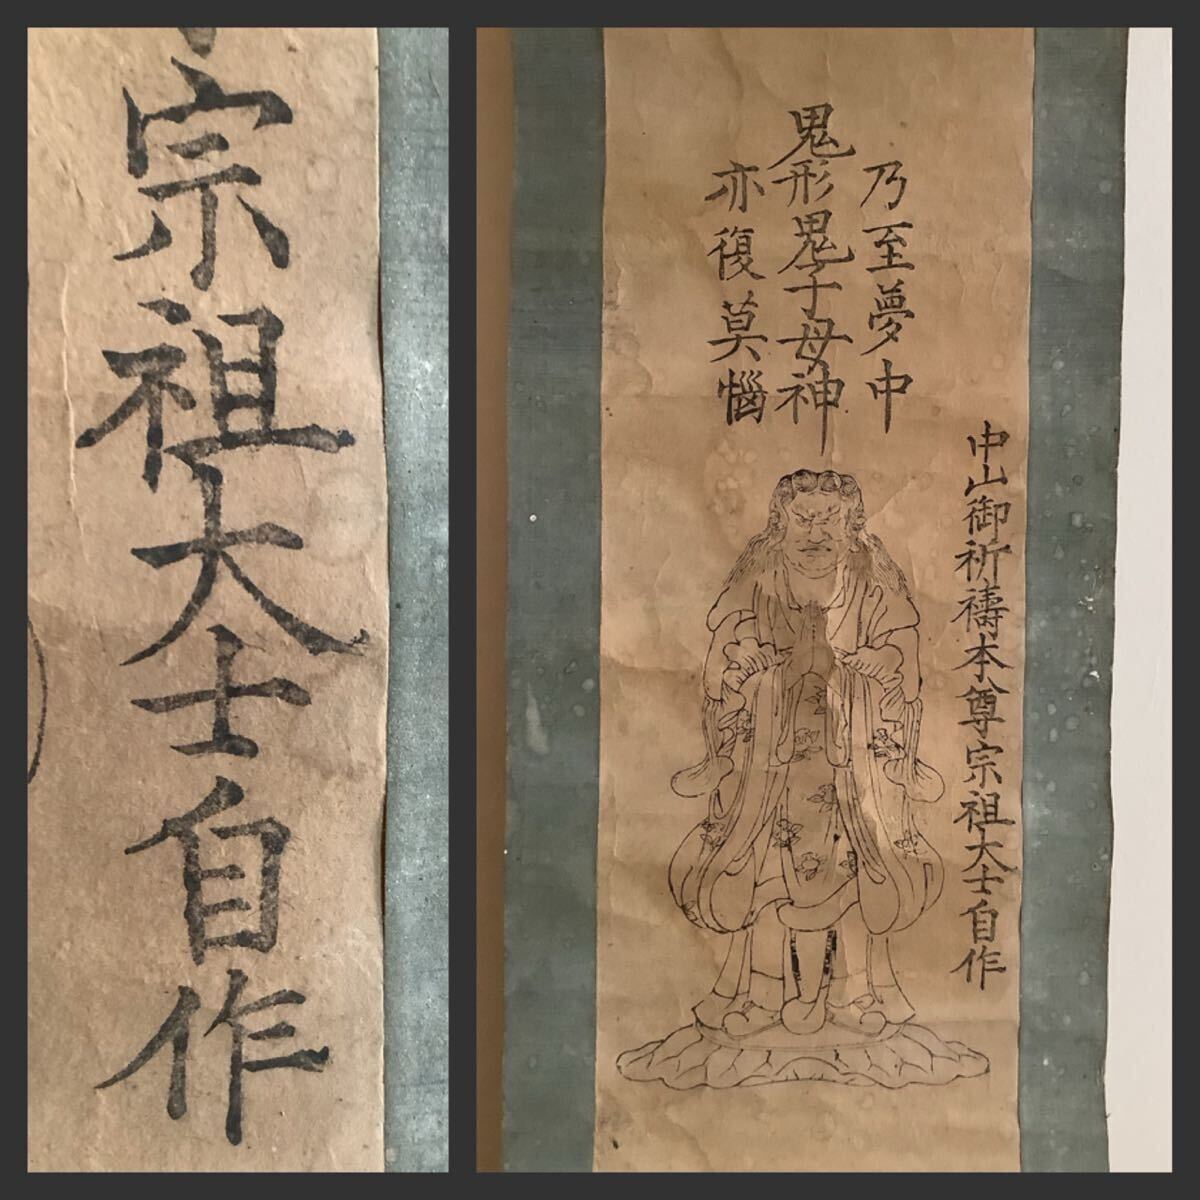 宗祖大士自作
乃至夢中
鬼形鬼子母神
亦復莫惱
中山御祈禱本尊宗祖大士自作